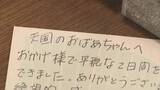 天国のおばあちゃんへ
おかげ様で平穏な2日間を
できました。ありがとうござい